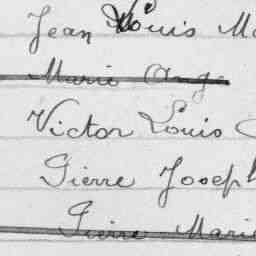 Jean Louis Ma
Marie Ange
Victor Louis
Pierre Joseph
Pierre Marie